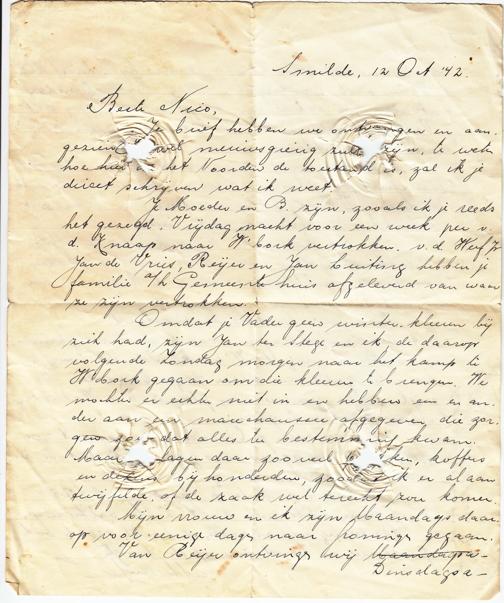 Smilde, 12 Oct '42.
Beste Nico,
Je brief hebben we ontvangen en aan-
gezien je wel nieuwsgierig zult zijn, te weten
hoe hier in het Noorden de toestand is, zal ik je
direct schrijven wat ik weet.
Je Moeder en B. zijn, zooals ik je reeds
heb gezegd, Vrijdagnacht voor een week per v.
d. Knaap naar W.bork vertrokken. v.d. Werf,
Jan de Vries, Reijer en Jan Luiting hebben je
familie a/h Gemeentehuis afgeleverd van waar
ze zijn vertrokken.
Omdat je Vader geen winter-kleeren bij
zich had, zijn Jan ter Stege en ik, de daarop
volgende Zondag morgen naar het kamp te
W.bork gegaan om die kleeren te brengen. We
mochten er echter niet in en hebben een en an-
der aan een marechaussee afgegeven, die zor-
gen zou dat alles te bestemming kwam.
Maar lagen daar zooveel koffers
en dekens, bij honderden, zoodat ik er al aan
twijfelde, of de zaak wel terecht zou komen.
Mijn vrouw en ik zijn Maandags daar-
op voor eenige dagen naar gegaan.
Van Reijer ontvingen wij Maandags a-
Dinsdags a-